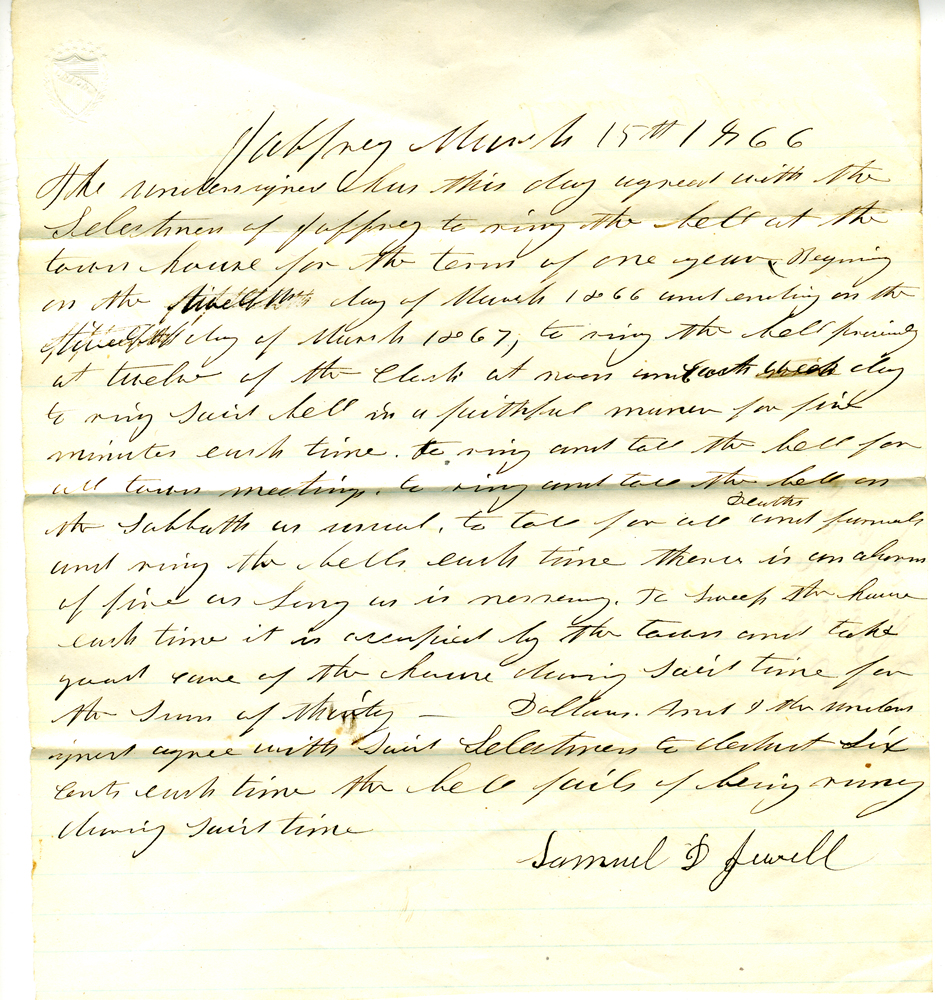 Jaffrey March 15th 1866
The undersigned has this day agreed with the
Selectmen of Jaffrey to ring the bell at the
town house for the term of one year, Begining
on the day of March 1866 and ending on the
day of March 1867, to ring the bell
at twelve of the Clock at noon and each week day
to ring said bell in a faithful maner for five
minutes each time. to ring and tole the bell for
all town meetings. to ring and tole the bell on
the Sabbath as usual. to tole for all Deaths and funerals
and ring the bells each time there is an alarm
of fire as long as is nessesary. to sweep the house
each time it is occupied by the town and take
good care of the house during said time for
the Sum of thirty — Dollars. And I the unders
igned agree with Said Selectmen to deduct Six
cents each time the bell fails of being rung
during said time
Samuel D Jewell